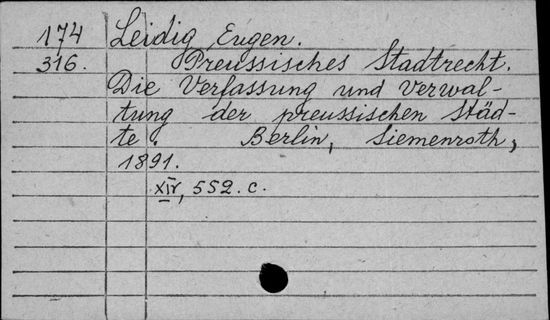 174 Leidig, Eugen.
316. Preussisches Stadtrecht.
Die Verfassung und Verwal-
tung der preussischen Städ-
te. Berlin, Siemenroth,
1891.
XIV, 552. c.